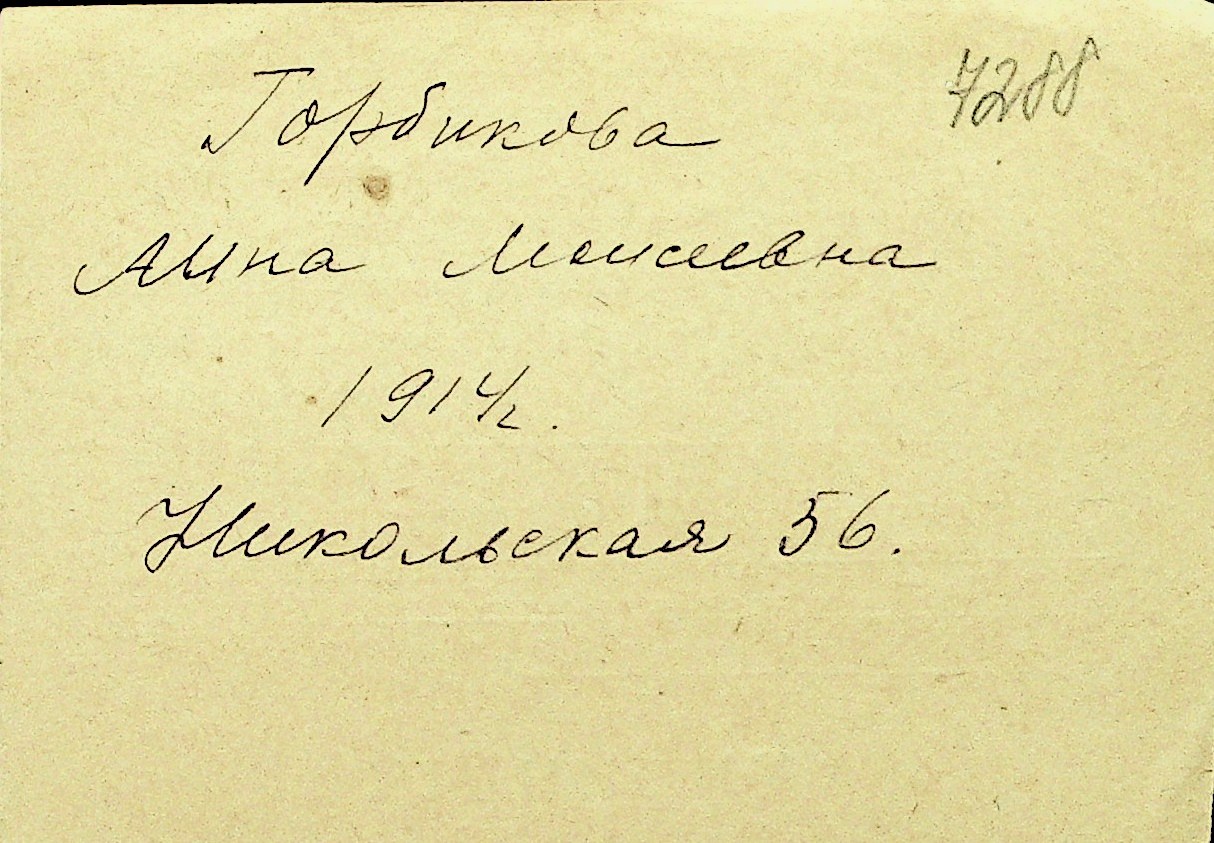 7288
Горбикова
Анна Моисеевна
1914г.
Никольская 56.